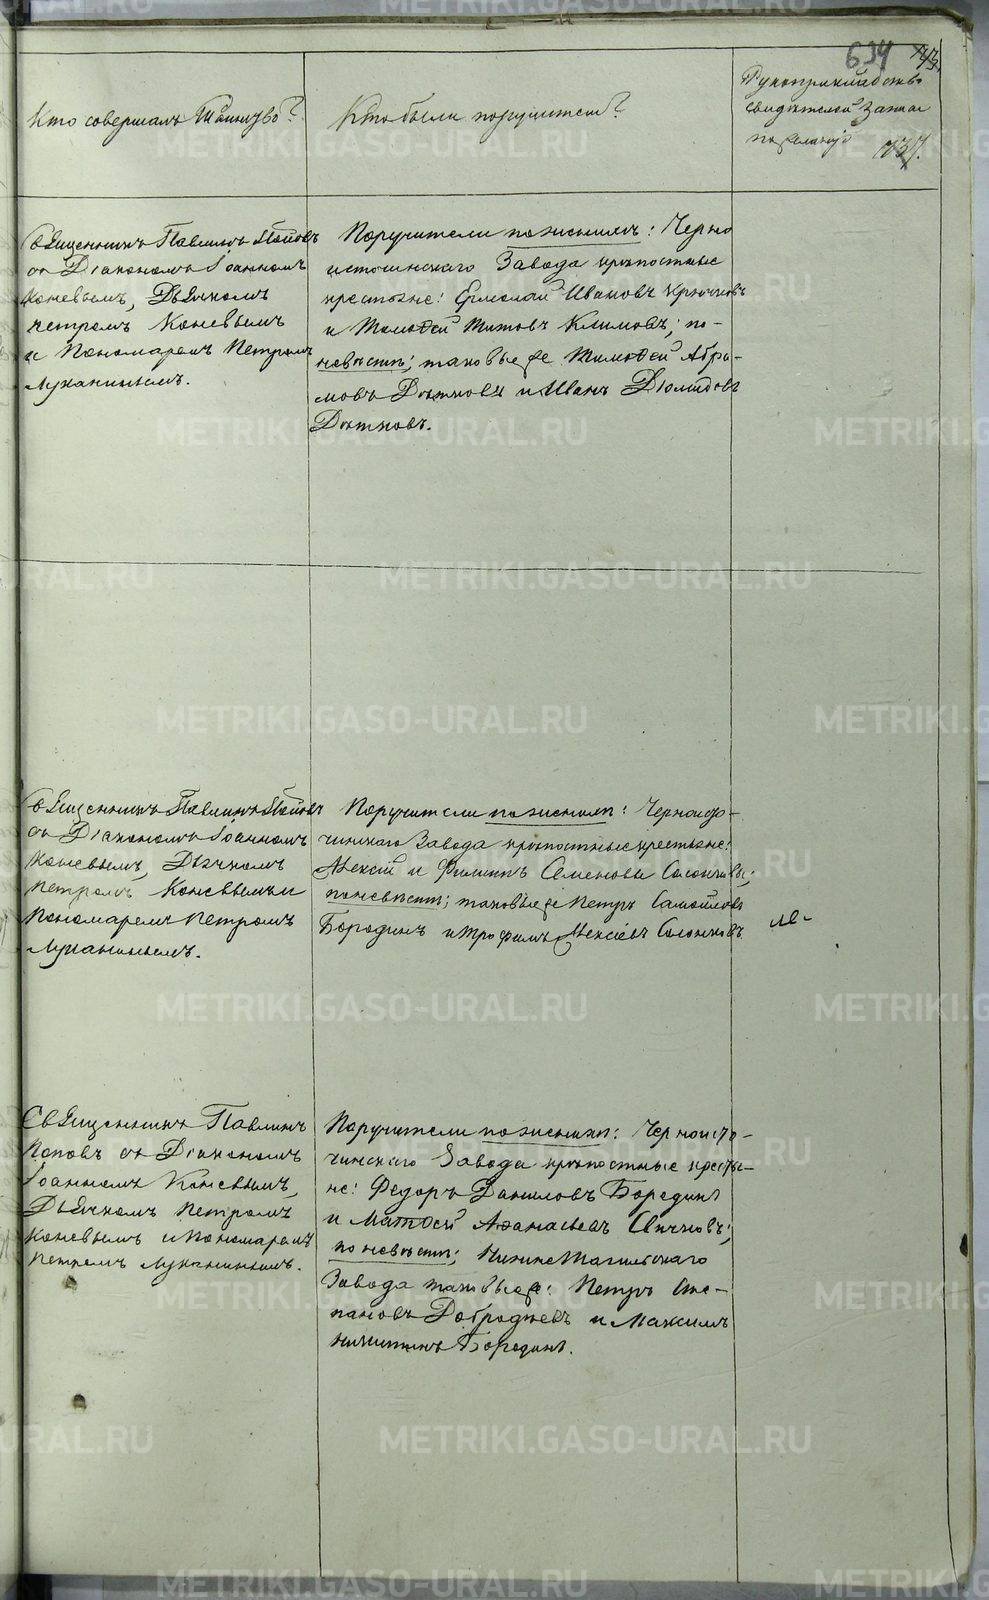 634
Кто совершалъ Таинство?
Кто были поручители?
Рукоприкладство
свидѣтелей записи
по желанію
Священникъ Павлинъ Поповъ
съ Діакономъ Іоанномъ
Коневымъ, Дьячкомъ
Петромъ Коневымъ
и Пономаремъ Петромъ
Луканинымъ.
Поручители по женихѣ: Черно
источинскаго Завода крѣпостные
крестьяне: Ермолай Ивановъ Крючковъ
и Тимофей Титовъ Климовъ; по-
невѣстѣ; таковые же Тимофей Абра-
мовъ и Иванъ Діомидовъ
Священникъ Павлинъ Поповъ
съ Діакономъ Іоанномъ
Коневымъ, Дьячкомъ
Петромъ Коневымъ и
Пономаремъ Петромъ
Луканинымъ.
Поручители по женихѣ: Черноисто-
чинскаго Завода крѣпостные крестьяне:
Алексѣй и Филиппъ Семеновы
по невѣстѣ; таковые же Петръ Самойловъ
Бородинъ и Трофимъ Алексѣевъ
Священникъ Павлинъ
Поповъ съ Діакономъ
Іоанномъ Коневымъ,
Дьячкомъ Петромъ
Коневымъ и Пономаремъ
Петромъ Луканинымъ.
Поручители по женихѣ: Черноисто-
чинскаго Завода крѣпостные крестья-
не: Федоръ Даниловъ Бородинъ
и Матвей Афанасьевъ
по невѣстѣ; Нижнетагильскаго
Завода таковые же: Петръ Сте-
пановъ и Максимъ
Никитинъ Бородинъ.
METRIKI.GASO-URAL.RU